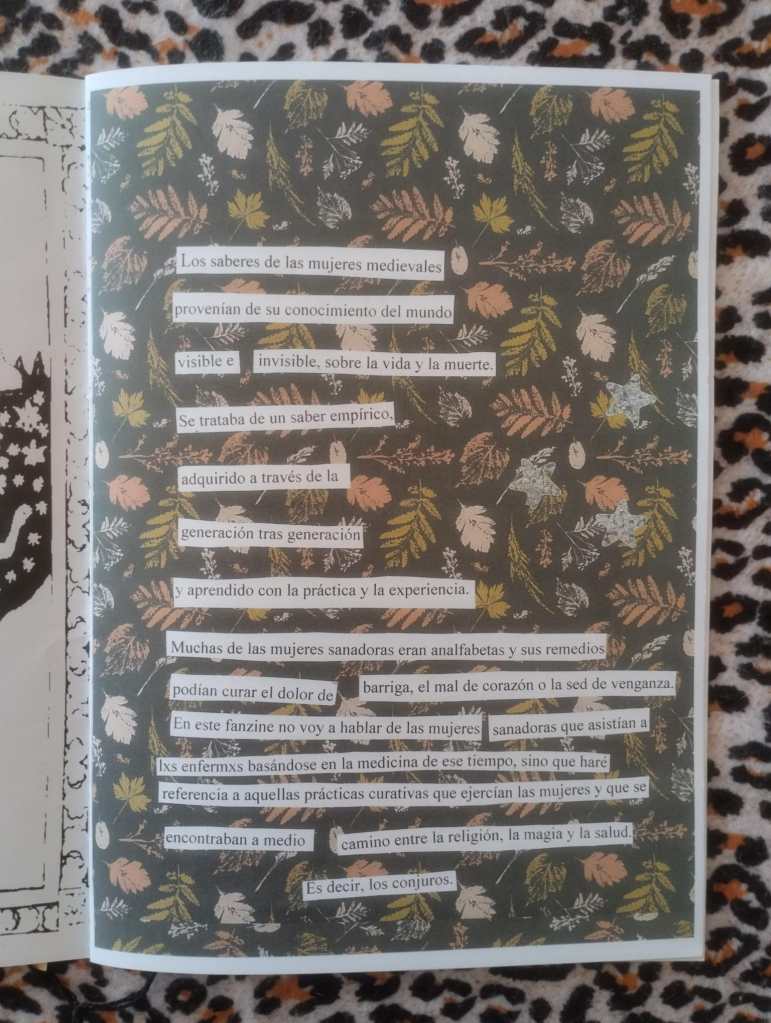 Los saberes de las mujeres medievales
provenían de su conocimiento del mundo
visible e invisible, sobre la vida y la muerte.
Se trataba de un saber empírico,
adquirido a través de la
generación tras generación
y aprendido con la práctica y la experiencia.
Muchas de las mujeres sanadoras eran analfabetas y sus remedios
podían curar el dolor de barriga, el mal de corazón o la sed de venganza.
En este fanzine no voy a hablar de las mujeres sanadoras que asistían a
lxs enfermxs basándose en la medicina de ese tiempo, sino que haré
referencia a aquellas prácticas curativas que ejercían las mujeres y que se
encontraban a medio camino entre la religión, la magia y la salud.
Es decir, los conjuros.